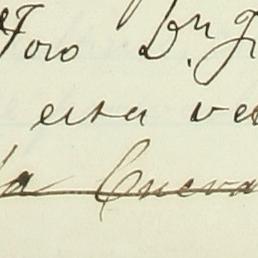 Toro Dn
esta ve
la Cueva